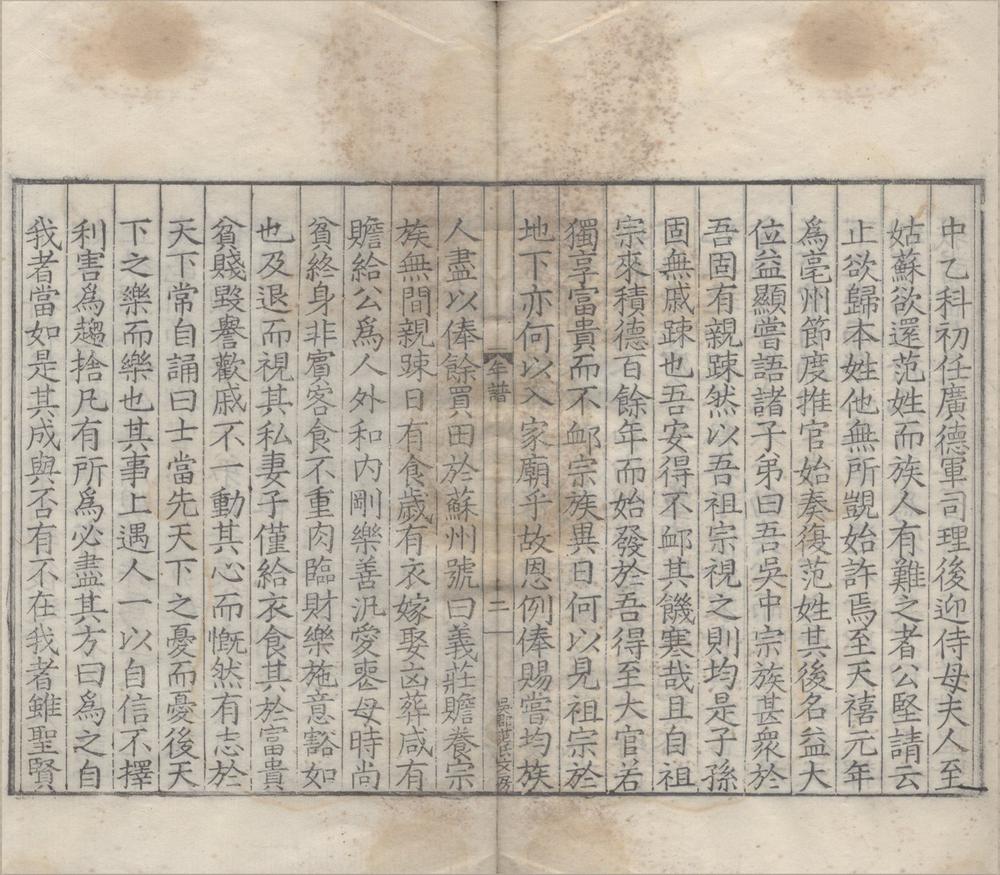 中乙科初任廣德軍司理後迎侍母夫人至
姑蘇欲還范姓而族人有難之者公堅請云
止欲歸本姓他無所覬始許焉至天禧元年
為亳州節度推官始奏復范姓其後名益大
位益顯嘗語諸子弟曰吾吳中宗族甚衆於
吾固有親踈然以吾祖宗視之則均是子孫
固無戚踈也吾安得不䘏其饑寒哉且自祖
宗來積德百餘年而始發於吾得至大官若
獨享富貴而不䘏宗族異日何以見祖宗於
地下亦何以入家廟乎故恩例俸賜嘗均族
年譜
二
吳郡范氏文房
人盡以俸餘買田於蘇州號曰義莊贍養宗
族無間親踈日有食歲有衣嫁娶凶葬咸有
贍給公為人外和內剛樂善汎愛喪母時尚
貧終身非賔客食不重肉臨財樂施意豁如
也及退而視其私妻子僅給衣食其於富貴
貧賤毀譽歡戚不一動其心而慨然有志於
天下常自誦曰士當先天下之憂而憂後天
下之樂而樂也其事上遇人一以自信不擇
利害為趨捨凡有所為必盡其方曰為之自
我者當如是其成與否有不在我者雖聖賢